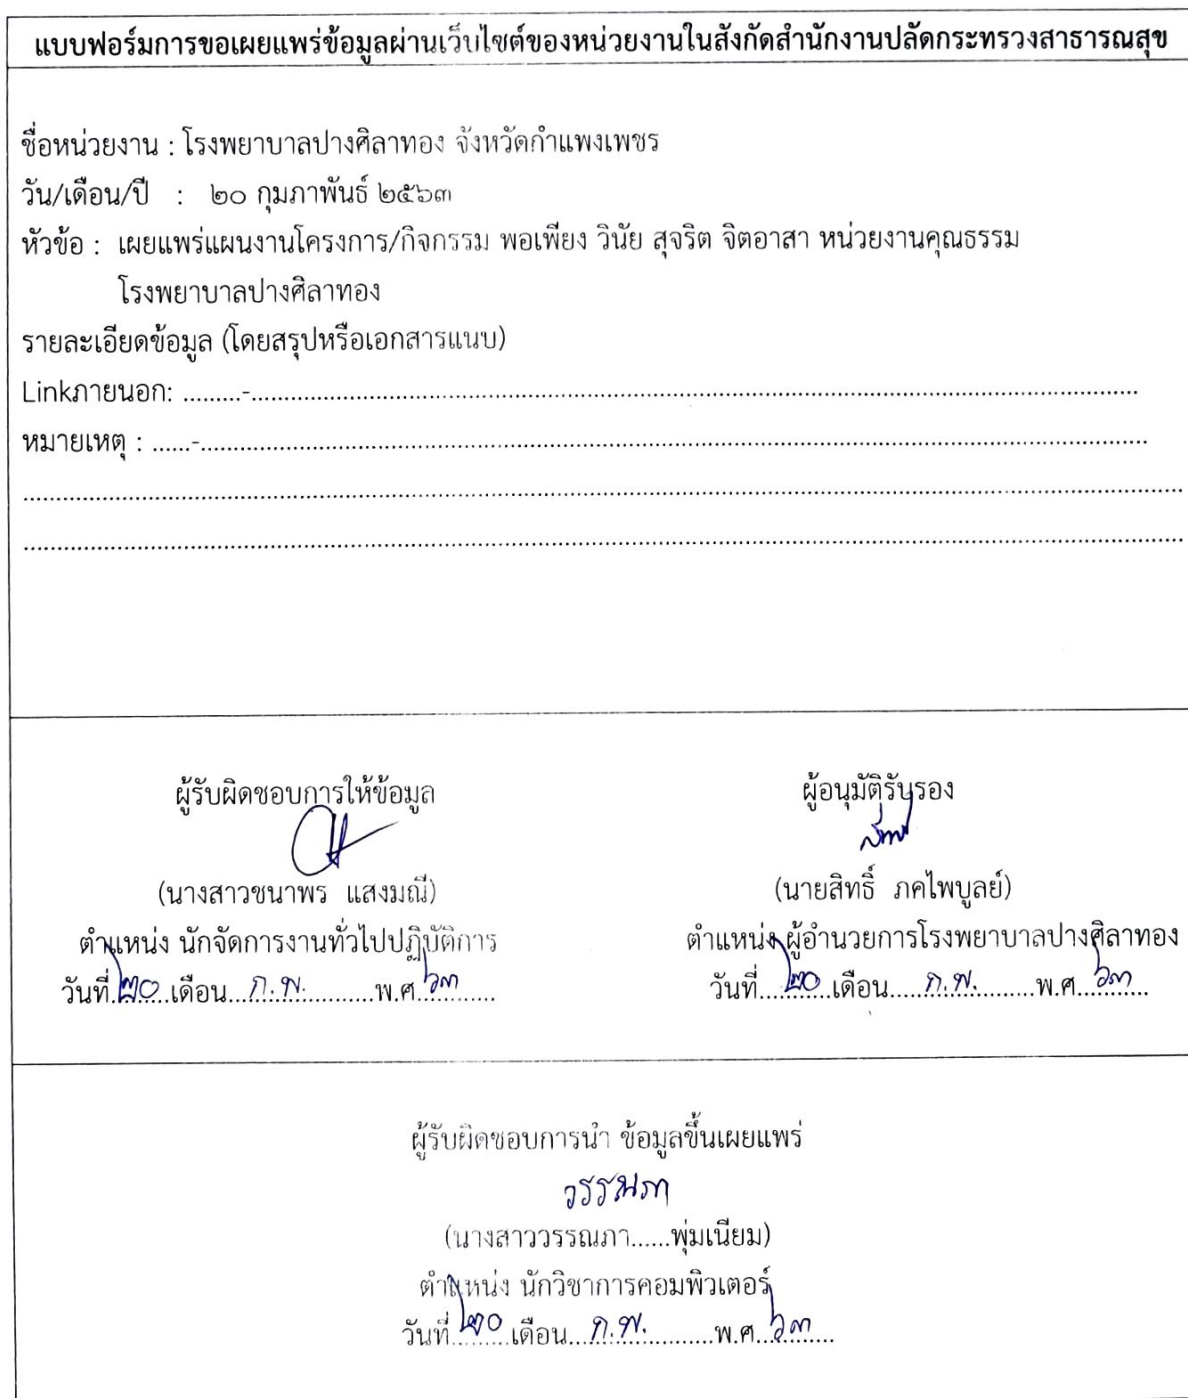 แบบฟอร์มการขอเผยแพร่ข้อมูลผ่านเว็บไซต์ของหน่วยงานในสังกัดสำนักงานปลัดกระทรวงสาธารณสุข
ชื่อหน่วยงาน : โรงพยาบาลปางศิลาทอง จังหวัดกำแพงเพชร
วัน/เดือน/ปี : ๒๐ กุมภาพันธ์ ๒๕๖๓
หัวข้อ : เผยแพร่แผนงานโครงการ/กิจกรรม พอเพียง วินัย สุจริต จิตอาสา หน่วยงานคุณธรรม
โรงพยาบาลปางศิลาทอง
รายละเอียดข้อมูล (โดยสรุปหรือเอกสารแนบ)
Linkภายนอก: .........-.........
หมายเหตุ : ......-.........
ผู้รับผิดชอบการให้ข้อมูล
(นางสาวชนาพร แสงมณี)
ตำแหน่ง นักจัดการงานทั่วไปปฏิบัติการ
วันที่ ๒๐ เดือน ก.พ. พ.ศ. ๖๓
ผู้อนุมัติรับรอง
(นายสิทธิ์ ภคไพบูลย์)
ตำแหน่ง ผู้อำนวยการโรงพยาบาลปางศิลาทอง
วันที่ ๒๐ เดือน ก.พ. พ.ศ. ๖๓
ผู้รับผิดชอบการนำ ข้อมูลขึ้นเผยแพร่
วรรณภา
(นางสาววรรณภา......พุ่มเนียม)
ตำแหน่ง นักวิชาการคอมพิวเตอร์
วันที่ ๒๐ เดือน ก.พ. พ.ศ. ๖๓